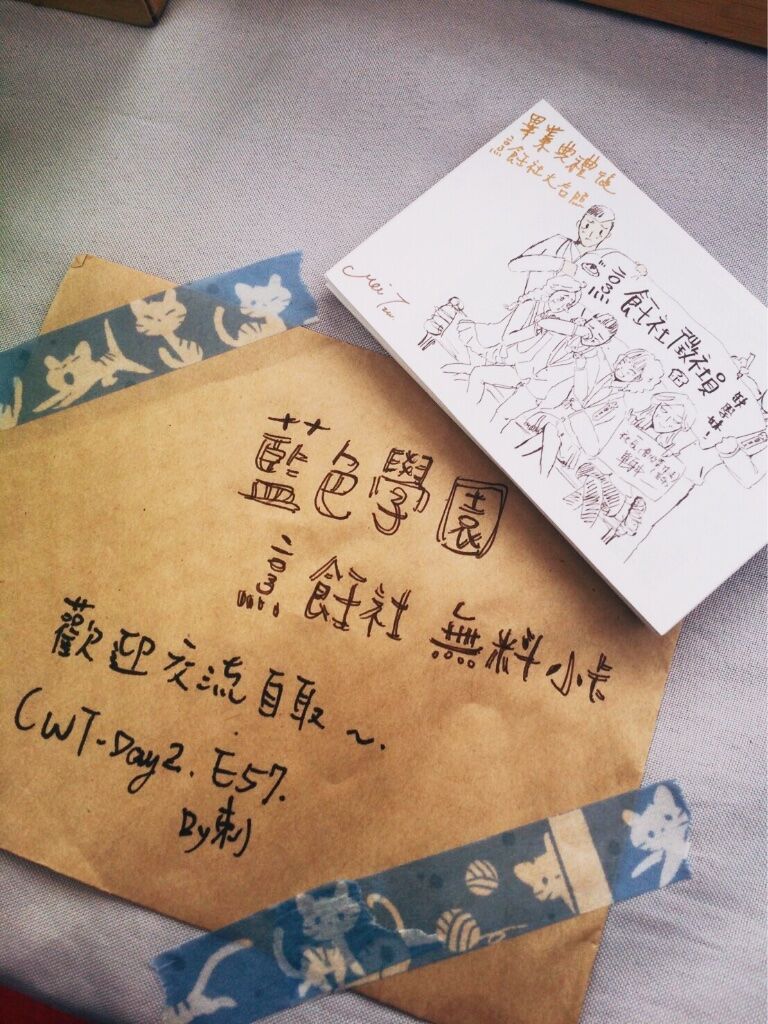 畢業典禮後
烹飪社大合照
Mei Tzu
烹飪社徵社員
藍色學園
烹飪社 無料小卡
歡迎交流自取~.
CWT-Day2. E57.
By刺